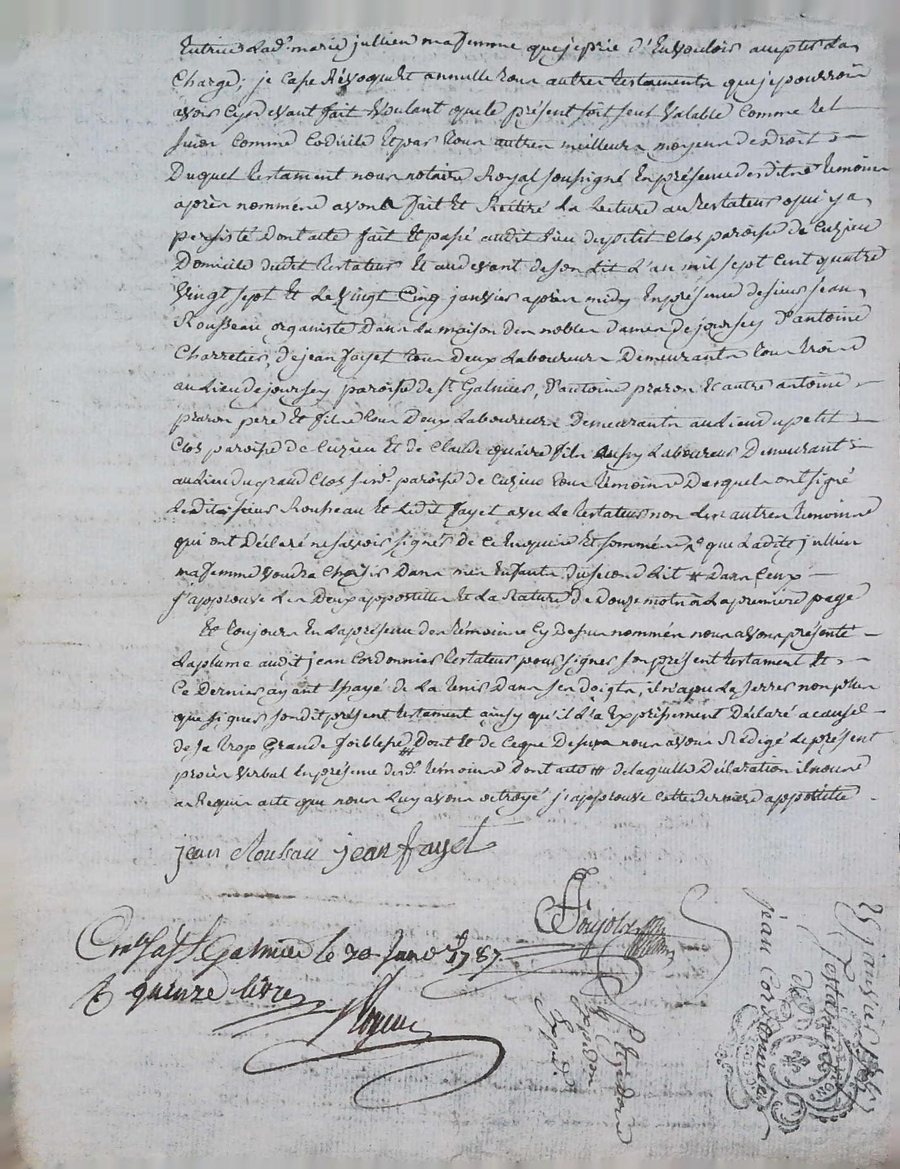 tutrice Lad.e marie jullien ma femme que je prie d'En vouloir accepter La
Charge, je Casse Révoque Et annulle tous autres testaments que je pourrois
avoir Cy devant fait Voulant que le présent soit seul Valable Comme tel
sinon Comme Codicile Et par tous autres meilleurs moyens de droit :-
Duquel testament nous notaire Royal soussigné En présence desdits témoins
après nommés avons fait Et Réitéré La lecture au testateur qui y a
persisté dont acte fait Et passé audit Lieu du petit Clos paroisse de Cuzieu
Domicile dudit testateur Et au devant de son Lit L'an mil sept Cent quatre
vingt sept Et Le Vingt Cinq janvier après midy En présence de sieur jean
Rousseau organiste Dans La maison des nobles Dames de joursey d'antoine
Charretier, de jean fayet tous deux Laboureurs Demeurants tous trois
au Lieu de joursey paroisse de St Galmier, d'antoine praron Et autre antoine
praron pere Et fils tous deux Laboureurs Demeurants au Lieu du petit
Clos paroisse de Cuzieu Et de Claude quaire fils aussy Laboureur Demeurant
au Lieu du grand Clos sus d. paroisse de Cuzieu tous témoins Desquels ont signé
Ledit sieur Rousseau Et Ledit fayet avec Le testateur non Les autres témoins
qui ont Déclaré ne savoir signer de Ce Enquis Et sommés que Ladite jullien
ma femme voudra Choisir Dans mes Enfants du second Lit # dans Ceux
j'approuve Les Deux appostilles Et La Rature de Douze mots a La première page
Et toujours En La présence des témoins Cy Dessus nommés nous avons présenté
La plume audit jean Cordonnier testateur pour signer son présent testament Et
Ce Dernier ayant Essayé de La tenir Dans ses doigts, il n'a pu La serrer non plus
que signer sondit présent testament ainsy qu'il L'a Expressément Déclaré a cause
de sa trop Grande foiblesse Dont Et de Ce que Dessus nous avons Rédigé Le présent
procès verbal En présence desd. témoins Dont acte # de laquelle Déclaration il nous
a Requis acte que nous Luy avons octroyé j'approuve Cette derniere appostille
jean Rousseau jean fayet
Pujolas
Con.lé a St Galmier le 30 Janv. 1787
quinze livres
25 janvier 1787
Testament
De
jean Cordonnier
Expédié